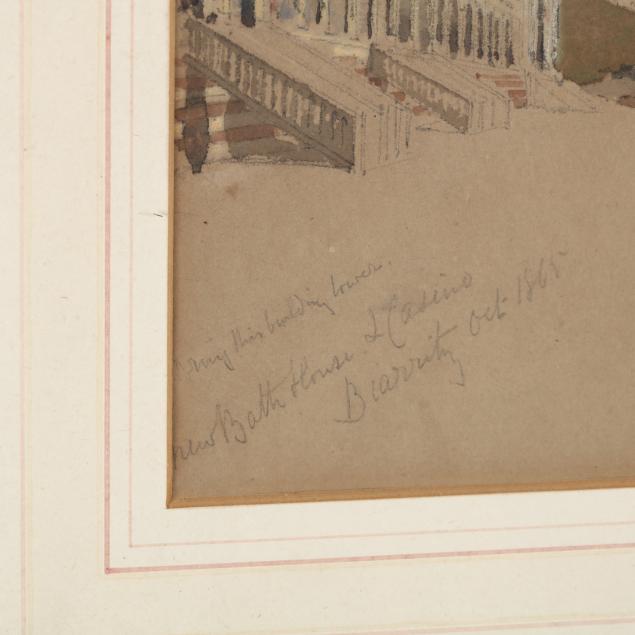 bring this building lower.
new Bath House & Casino
Biarritz Oct 1865